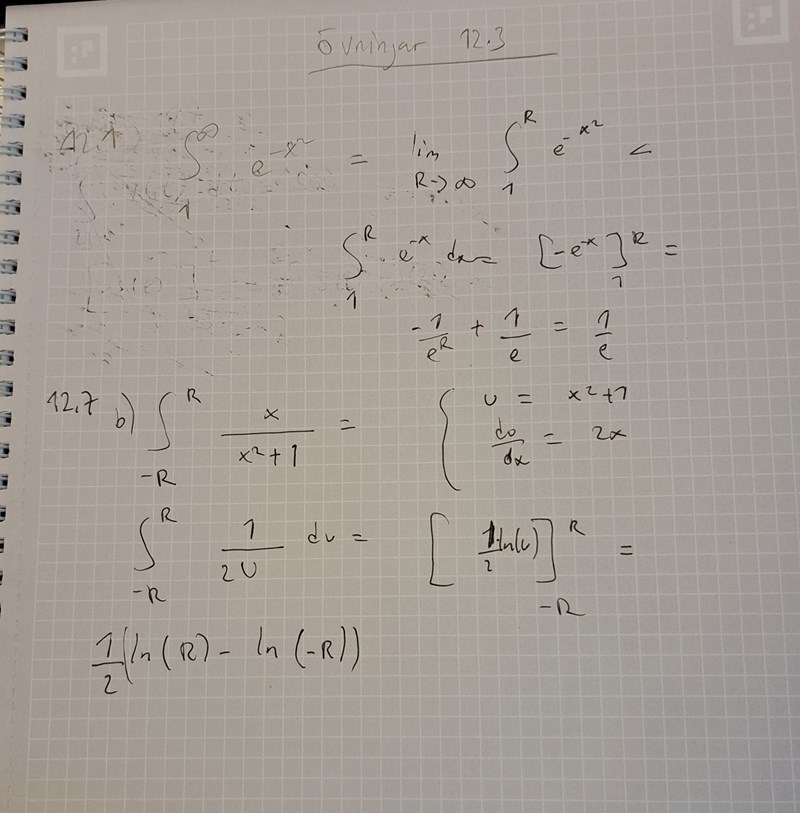 Övningar 12.3
12.1 ∫₁^∞ e^{-x²} = lim_{R→∞} ∫₁^R e^{-x²} <
∫₁^R e^{-x} dx = [-e^{-x}]₁^R =
-1/e^R + 1/e = 1/e
12.7 b) ∫_{-R}^R x/(x²+1) = { u = x²+1
du/dx = 2x
∫_{-R}^R 1/(2u) du = [1/2 ln(u)]_{-R}^R =
1/2 (ln(R) - ln(-R))